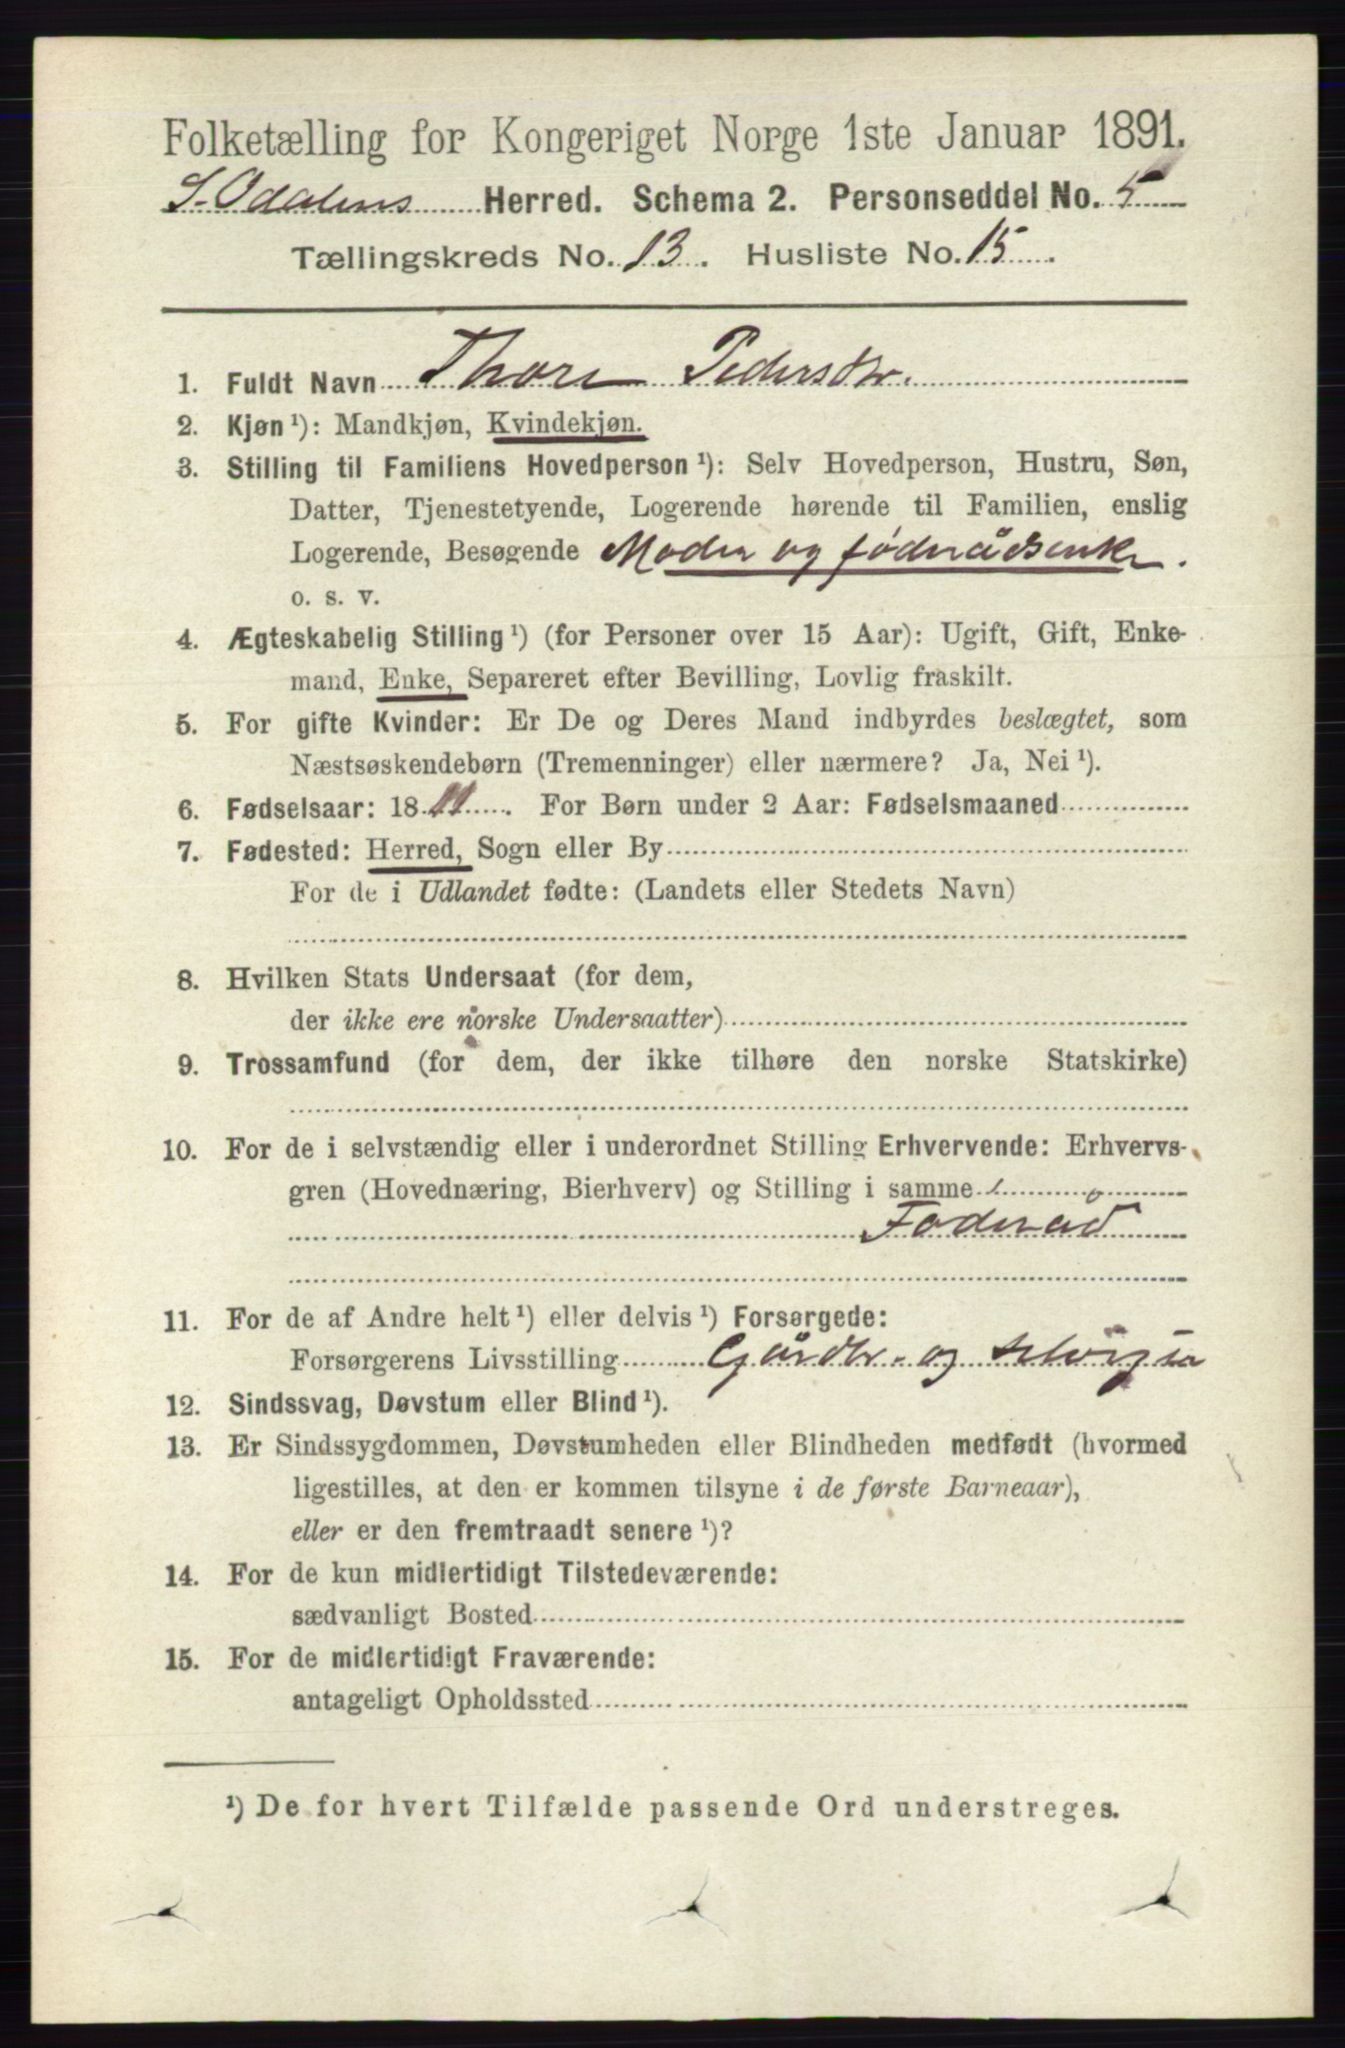 Folketælling for Kongeriget Norge 1ste Januar 1891.
S. Odalens Herred. Schema 2. Personseddel No. 5
Tællingskreds No. 13. Husliste No. 15.
1. Fuldt Navn Thore Pedersdtr.
2. Kjøn¹): Mandkjøn, Kvindekjøn.
3. Stilling til Familiens Hovedperson¹): Selv Hovedperson, Hustru, Søn,
Datter, Tjenestetyende, Logerende hørende til Familien, enslig
Logerende, Besøgende Moder og føderådsenke.
o. s. v.
4. Ægteskabelig Stilling¹) (for Personer over 15 Aar): Ugift, Gift, Enke-
mand, Enke, Separeret efter Bevilling, Lovlig fraskilt.
5. For gifte Kvinder: Er De og Deres Mand indbyrdes beslægtet, som
Næstsøskendebørn (Tremenninger) eller nærmere? Ja, Nei¹).
6. Fødselsaar: 1811. For Børn under 2 Aar: Fødselsmaaned
7. Fødested: Herred, Sogn eller By
For de i Udlandet fødte: (Landets eller Stedets Navn)
8. Hvilken Stats Undersaat (for dem,
der ikke ere norske Undersaatter)
9. Trossamfund (for dem, der ikke tilhøre den norske Statskirke)
10. For de i selvstændig eller i underordnet Stilling Erhvervende: Erhvervs-
gren (Hovednæring, Bierhverv) og Stilling i samme
Foderåd
11. For de af Andre helt¹) eller delvis¹) Forsørgede:
Forsørgerens Livsstilling Gårdbr. og selveier
12. Sindssvag, Døvstum eller Blind¹).
13. Er Sindssygdommen, Døvstumheden eller Blindheden medfødt (hvormed
ligestilles, at den er kommen tilsyne i de første Barneaar),
eller er den fremtraadt senere¹)?
14. For de kun midlertidigt Tilstedeværende:
sædvanligt Bosted
15. For de midlertidigt Fraværende:
antageligt Opholdssted
¹) De for hvert Tilfælde passende Ord understreges.